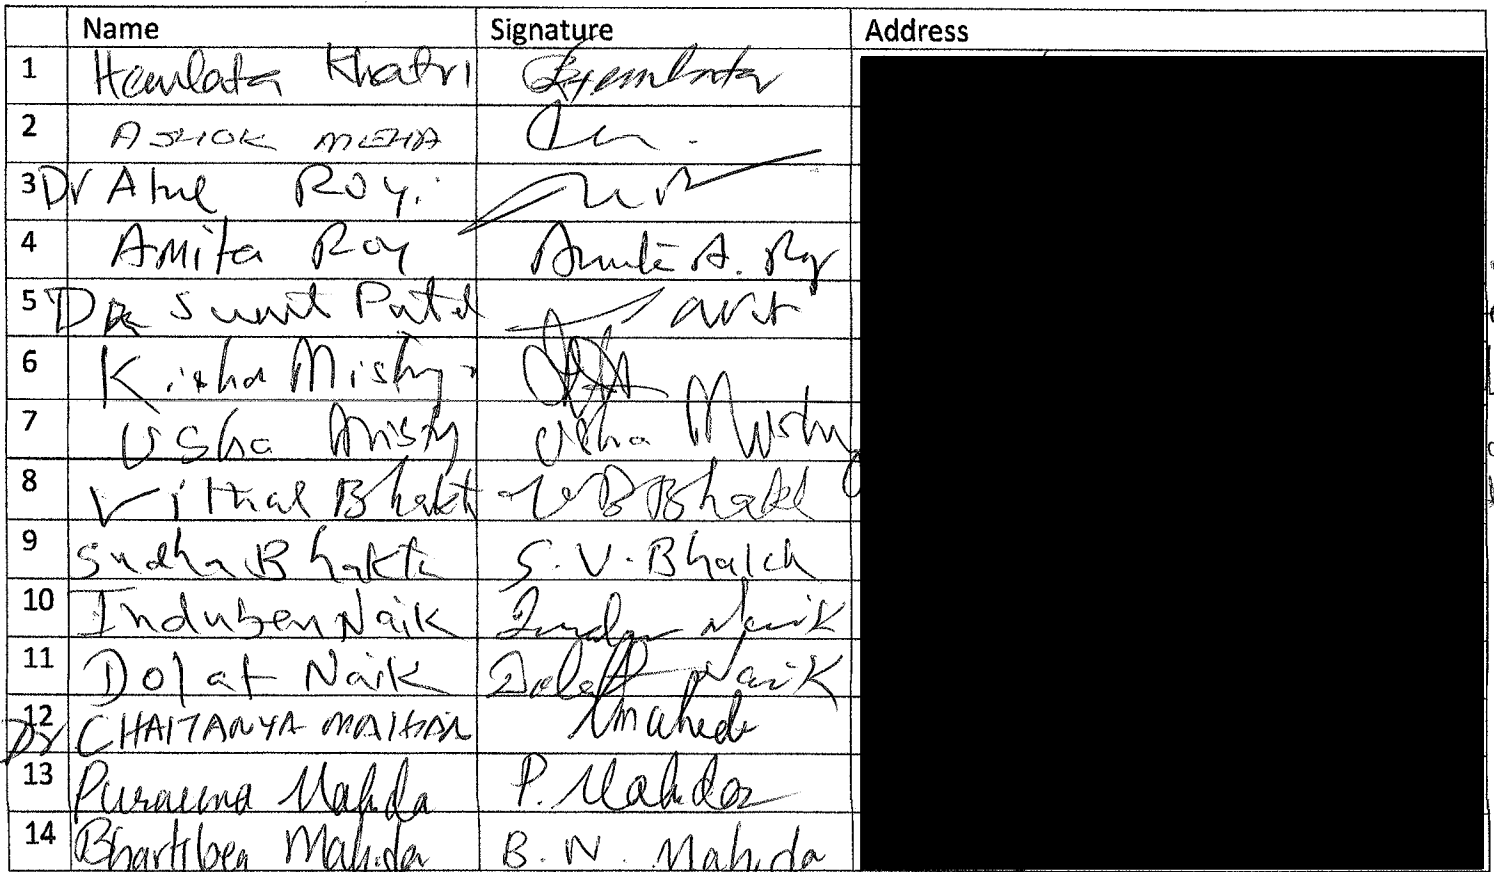 Name Signature Address
1 Hemlata Khatri Hemlata
2 ASHOK MEHA
3 Dr Atul Roy.
4 Amita Roy Amita A. Roy
5 Dr Sunit Patel
6 Kisha Mistry
7 Usha Mistry Usha Mistry
8 Vithal Bhakt V B Bhakt
9 Sudha Bhakta S. V. Bhakta
10 Induben Naik Naik
11 Dolat Naik Dolat Naik
12 Dr CHAITANYA
13 Mahida P. Mahida
14 Bhartiben Mahida B. N. Mahida